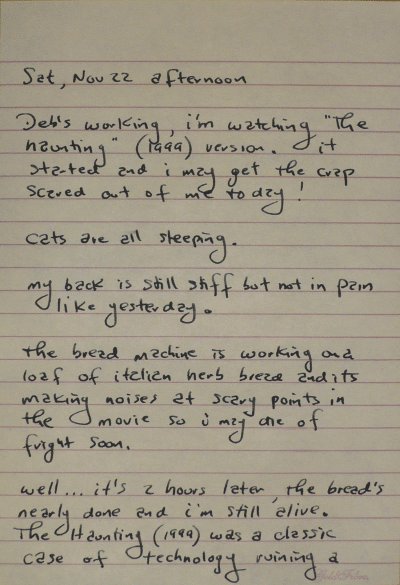 Sat, Nov 22 afternoon
Deb's working, i'm watching "The
haunting" (1999) version. it
started and i may get the crap
scared out of me today!
cats are all sleeping.
my back is still stiff but not in pain
like yesterday.
the bread machine is working on a
loaf of italian herb bread and its
making noises at scary points in
the movie so i may die of
fright soon.
well... it's 2 hours later, the bread's
nearly done and i'm still alive.
The Haunting (1999) was a classic
case of technology ruining a